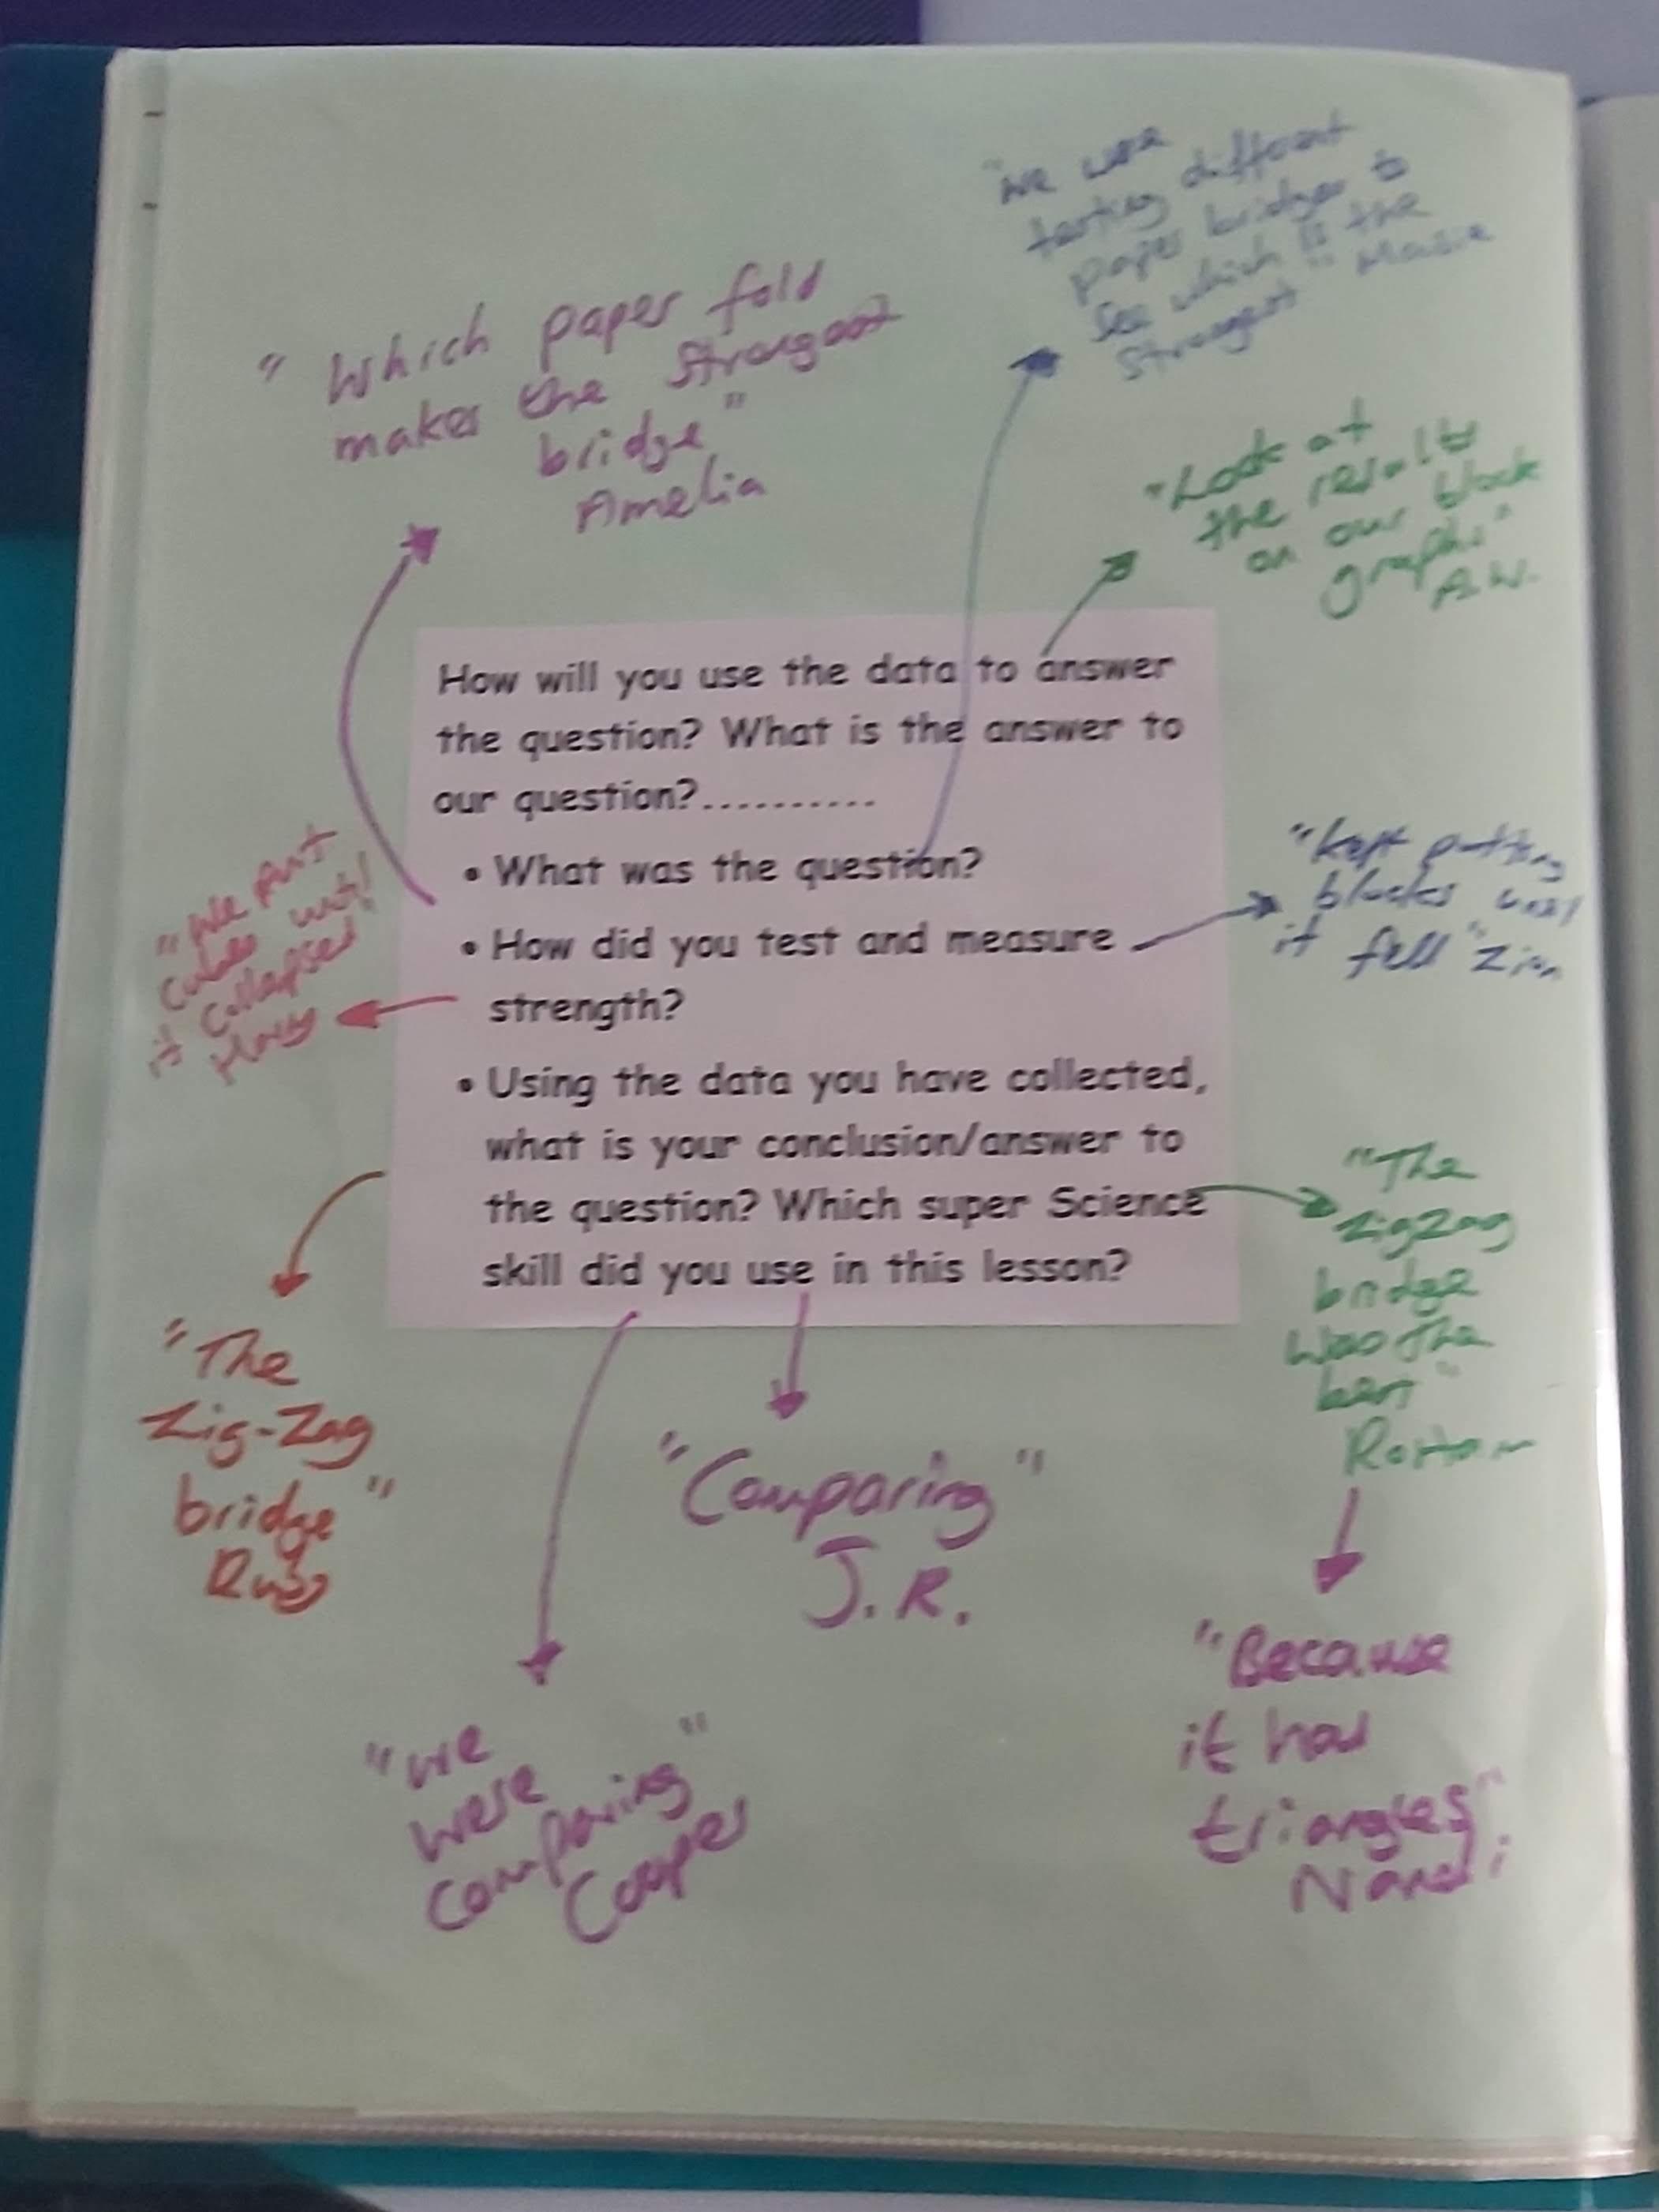 "we were
testing different
paper bridges to
see which is the
strongest" Maisie
"Which paper fold
makes the strongest
bridge"
Amelia
"Look at
the results
on our block
graphs"
A.W.
How will you use the data to answer
the question? What is the answer to
our question?..........
• What was the question?
• How did you test and measure
strength?
• Using the data you have collected,
what is your conclusion/answer to
the question? Which super Science
skill did you use in this lesson?
"We put
cubes until
it collapsed"
"kept putting
blocks until
it fell" Zion
"The
Zig-Zag
bridge"
Ruby
"The
zigzag
bridge
was the
best"
"Comparing"
J.R.
"we
were
comparing"
Cooper
"Because
it has
triangles"
Nandi